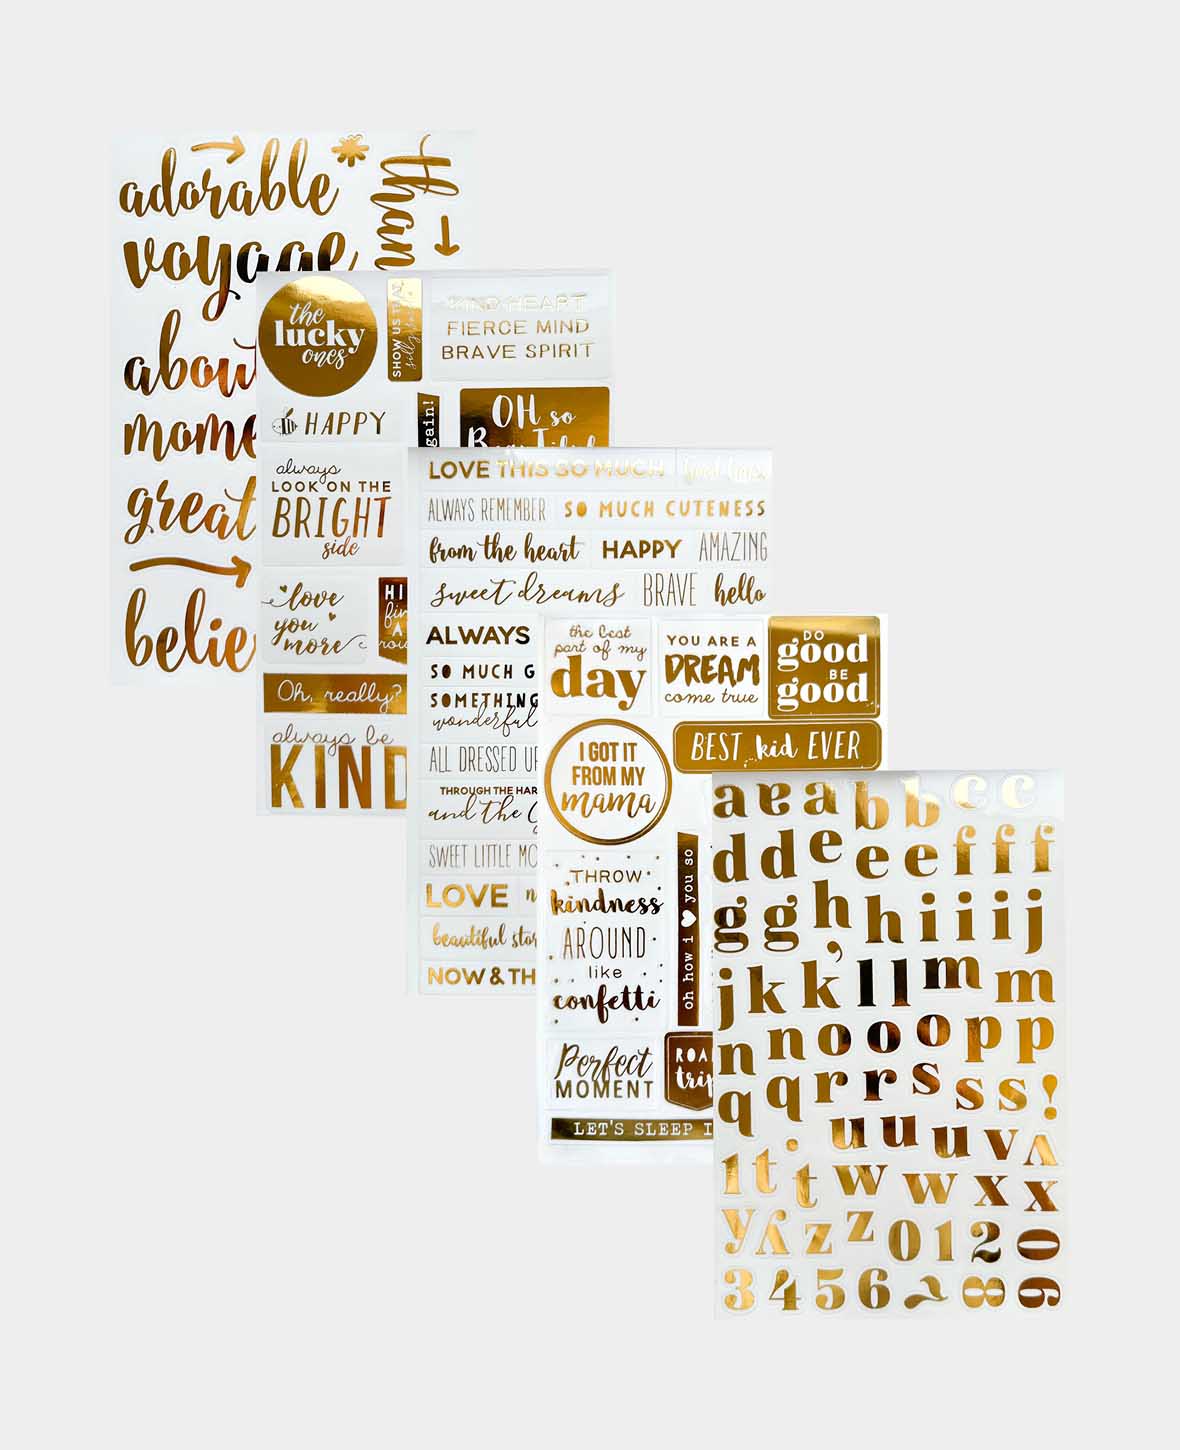 adorable
than
voyage
about
mome
great
belie
the
lucky
ones
SHOW US THAT
KIND HEART
FIERCE MIND
BRAVE SPIRIT
HAPPY
gain!
OH so
always
LOOK ON THE
BRIGHT
side
love
you
more
HI
Oh, really?
always be
KIND
LOVE THIS SO MUCH
good times
ALWAYS REMEMBER
SO MUCH CUTENESS
from the heart
HAPPY
AMAZING
sweet dreams
BRAVE
hello
ALWAYS
SO MUCH G
SOMETHING
wonderful
ALL DRESSED UP
THROUGH THE HAR
and the
SWEET LITTLE MO
LOVE
beautiful stor
NOW & TH
the best
part of my
day
YOU ARE A
DREAM
come true
DO
good
BE
good
I GOT IT
FROM MY
mama
BEST kid EVER
THROW
kindness
AROUND
like
confetti
oh how i ♥ you so
Perfect
MOMENT
ROA
trip
LET'S SLEEP I
a a a b b c c
d d e e e f f f
g g h h i i i j
j k k ' l l m m
n n o o o p p
q q r r s s s !
u u u v v
1 t t w w x x
y y z z 0 1 2 0
3 4 5 6 7 8 9